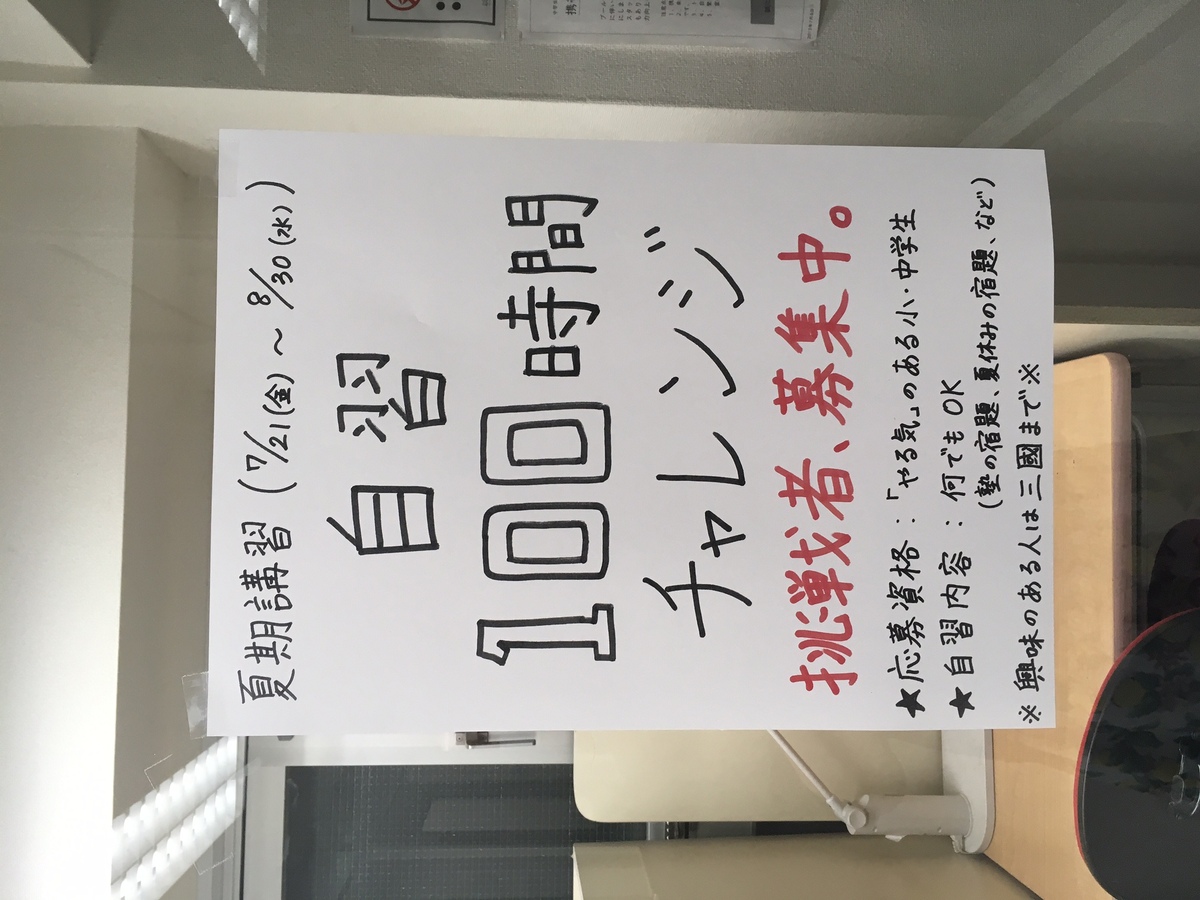 夏期講習(7/21(金)～8/30(水))
自習
100時間
チャレンジ
挑戦者、募集中。
★応募資格:「やる気」のある小・中学生
★自習内容:何でもOK
(塾の宿題、夏休みの宿題、など)
※興味のある人は三國まで※